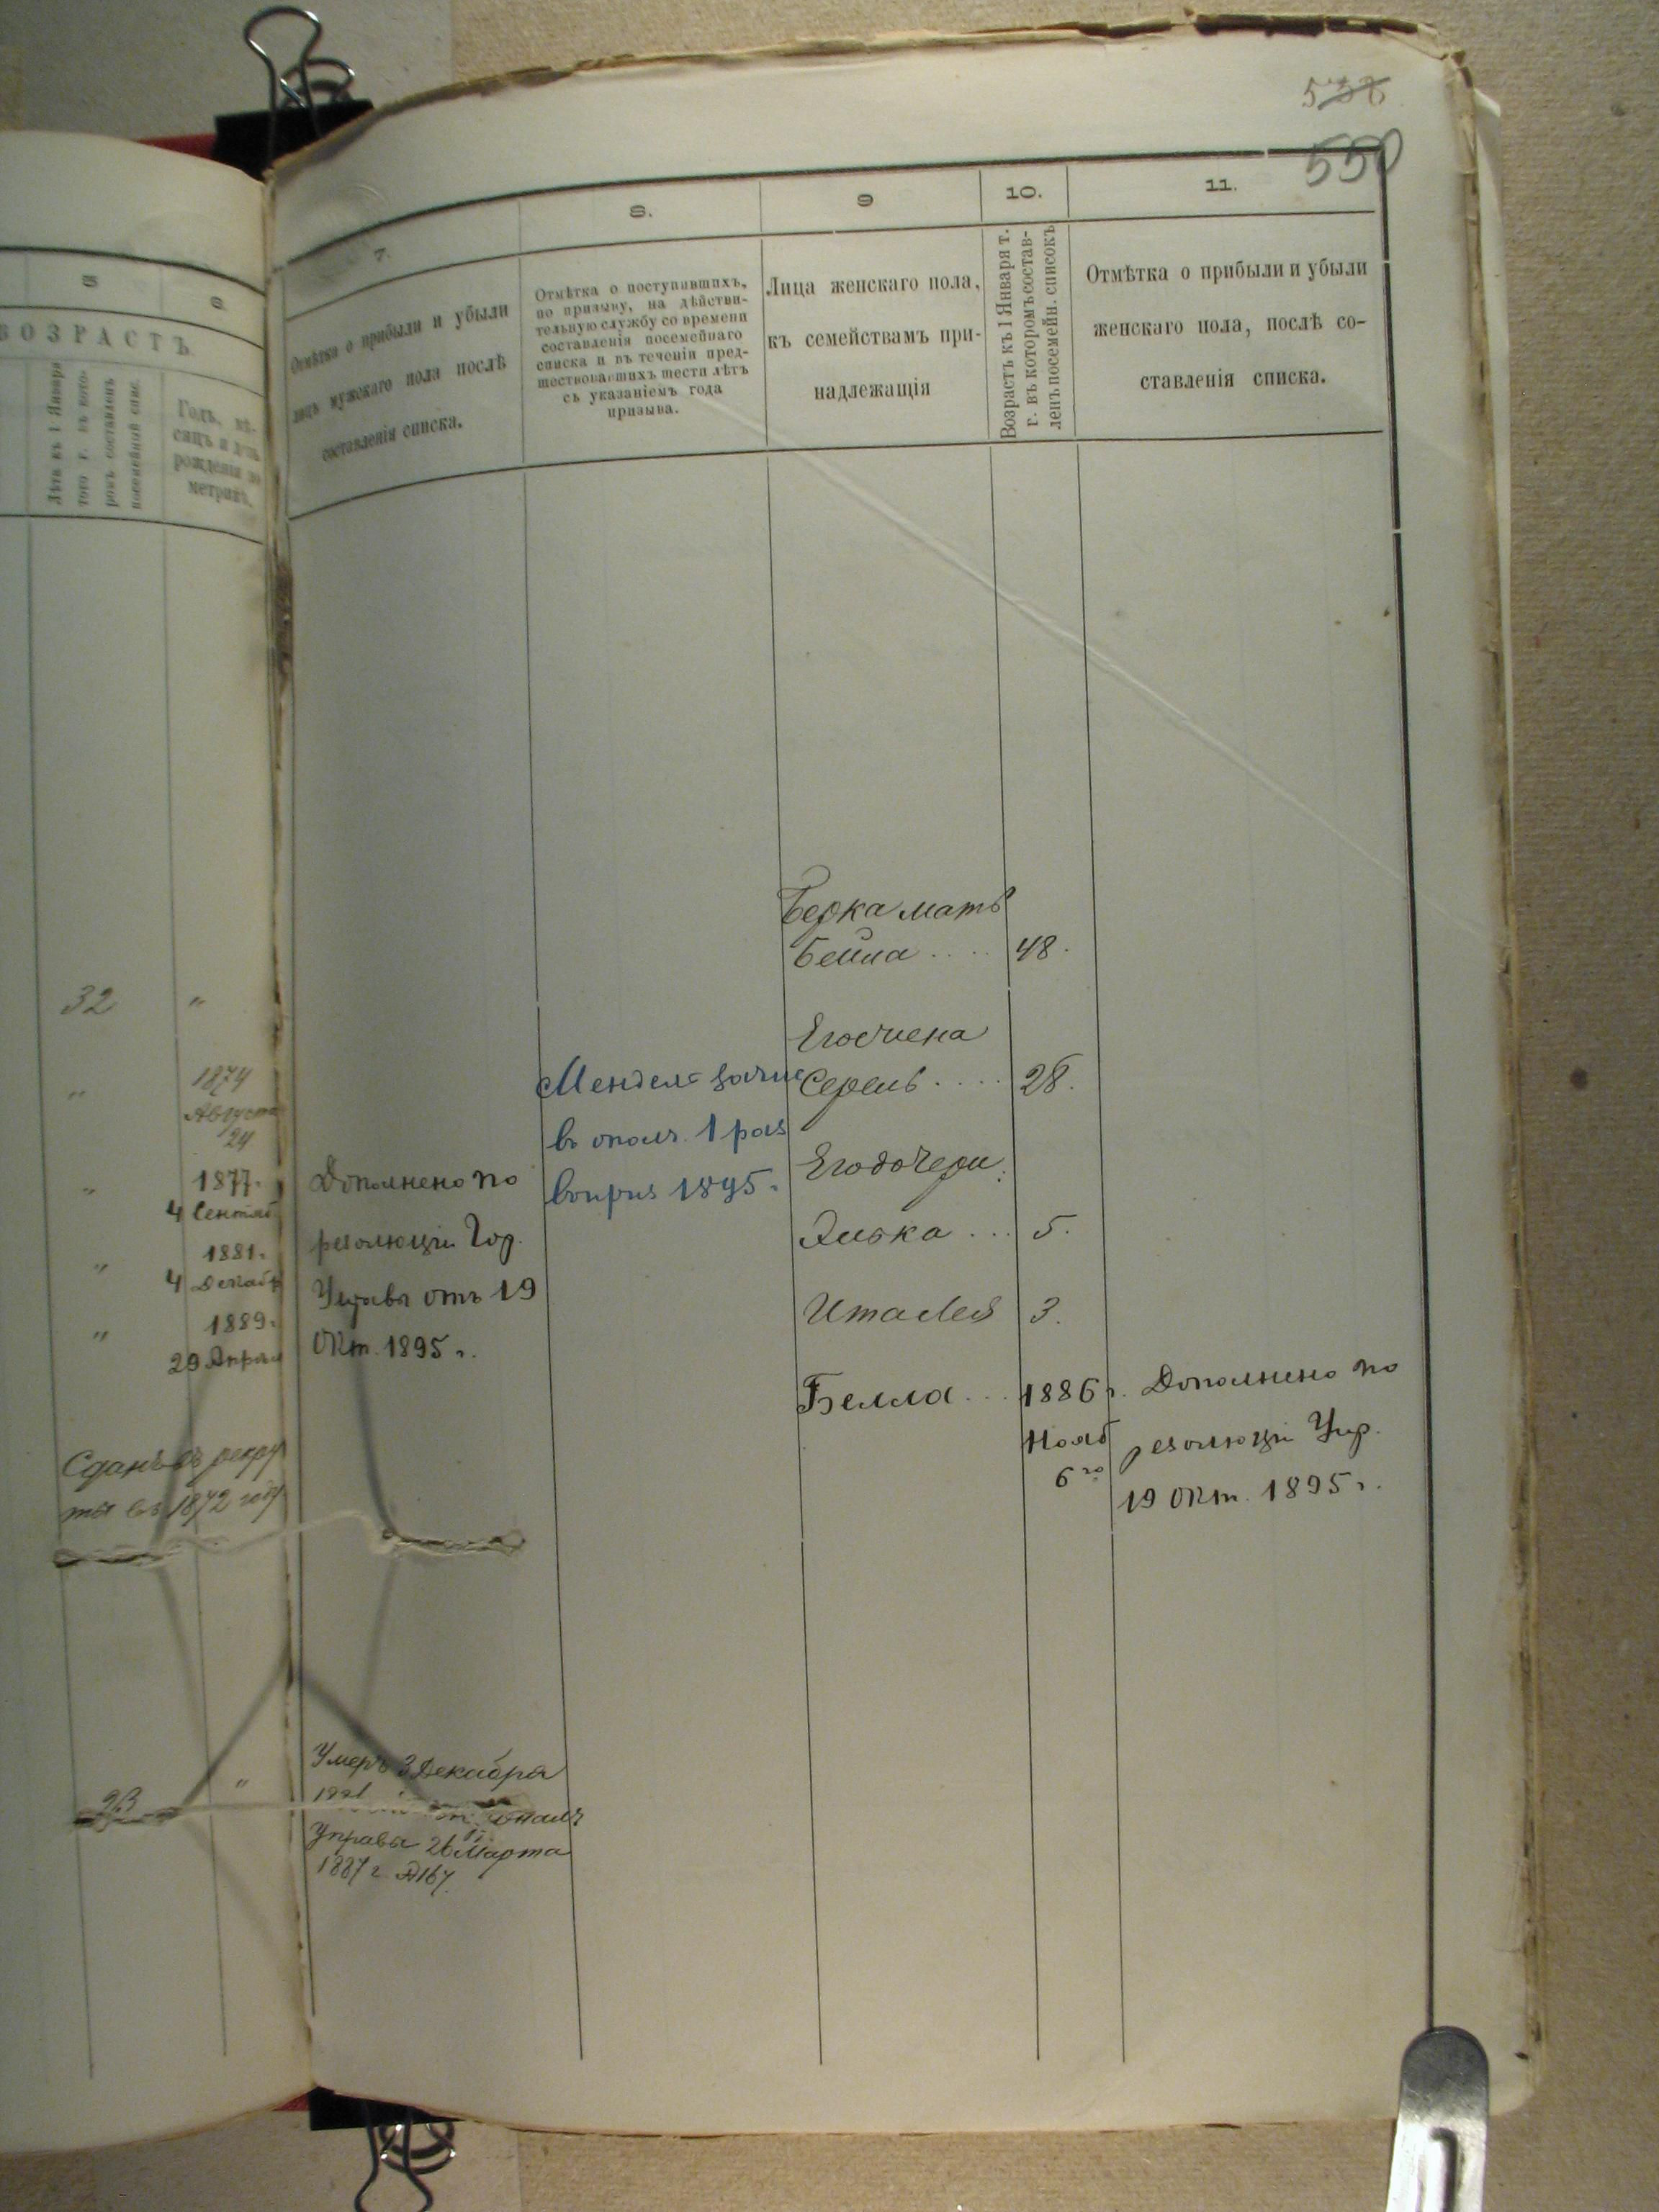 538
550
5
6
ВОЗРАСТЪ
Лѣтъ къ 1 Января
того г. въ кото-
ромъ составленъ
посемейный спис.
Годъ, мѣ-
сяцъ и день
рожденія по
метрикѣ.
7.
Отмѣтка о прибыли и убыли
лицъ мужскаго пола послѣ
составленія списка.
8.
Отмѣтка о поступившихъ,
по призыву, на дѣйстви-
тельную службу со времени
составленія посемейнаго
списка и въ теченіи пред-
шествовавшихъ шести лѣтъ
съ указаніемъ года
призыва.
9
Лица женскаго пола,
къ семействамъ при-
надлежащія
10.
Возрастъ къ 1 Января т.
г. въ которомъ состав-
ленъ посемейн. списокъ
11.
Отмѣтка о прибыли и убыли
женскаго пола, послѣ со-
ставленія списка.
Берка мать
Бейла .... 48.
32 "
Его жена
Серель .... 28.
" 1874
Августа
24
Мендель зачис
въ ополч. 1 раз
въ приз 1895.
Его дочери:
" 1877.
4 Сентяб
" 1881.
4 Декабр
" 1889.
29 Апрѣл
Дополнено по
резолюціи Гор.
Управы отъ 19
Окт. 1895 г.
Элька ... 5.
Ита Лея 3.
Белла ... 1886 г.
Нояб
6го
Дополнено по
резолюціи Упр.
19 Окт. 1895 г.
Сданъ въ рекру
ты въ 1872 году
23 "
Умеръ 3 Декабря
Управы 26 Марта
1887 г. №167.